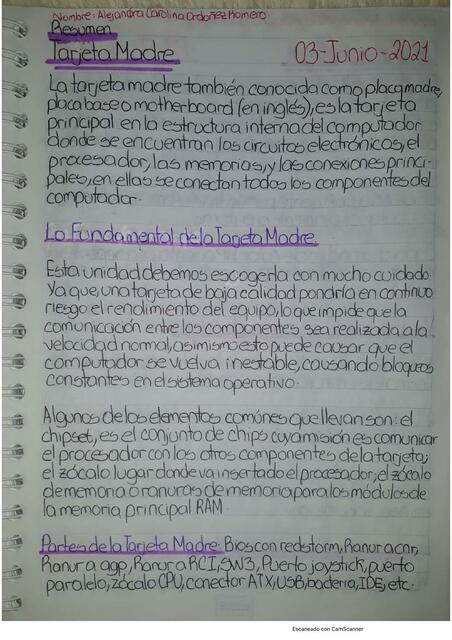 Nombre: Alejandra Carolina Ordoñez Romero.
Resumen
Tarjeta Madre 03-Junio-2021
La tarjeta madre también conocida como placa madre,
placa base o motherboard (en inglés), es la tarjeta
principal en la estructura interna del computador
donde se encuentran los circuitos electrónicos, el
procesador, las memorias, y las conexiones princi-
pales, en ellas se conectan todos los componentes del
computador.
Lo Fundamental de la Tarjeta Madre
Esta unidad debemos escogerla con mucho cuidado.
Ya que, una tarjeta de baja calidad pondría en continuo
riesgo el rendimiento del equipo, lo que impide que la
comunicación entre los componentes sea realizada a la
velocidad normal, asimismo esto puede causar que el
computador se vuelva inestable, causando bloqueos
constantes en el sistema operativo.
Algunos de los elementos comúnes que llevan son: el
chipset, es el conjunto de chips cuya misión es comunicar
el procesador con los otros componentes de la tarjeta;
el zócalo lugar donde va insertado el procesador; el zócalo
de memoria o ranuras de memoria para los módulos de
la memoria principal RAM.
Partes de la Tarjeta Madre: Bios con redstorm, Ranura cnr,
Ranura agp, Ranura RCI, SW3, Puerto joystick, puerto
paralelo, zócalo CPU, conector ATX, USB, bacteria, IDE, etc.
Escaneado con CamScanner